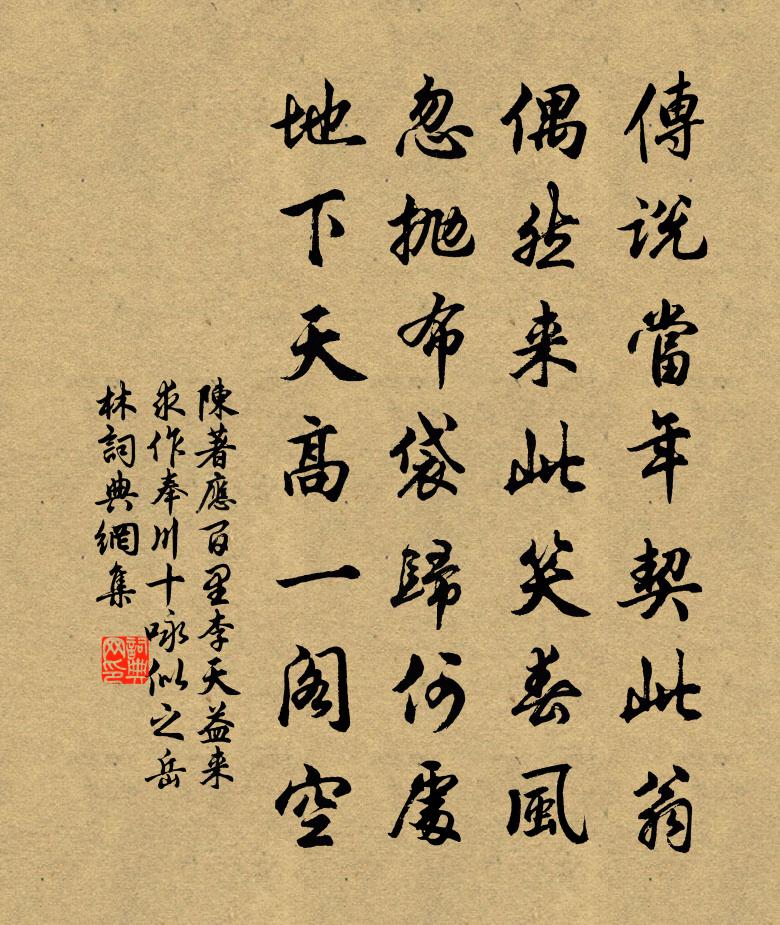 傳說當年契此翁
偶然来此笑春風
忽抛布袋歸何處
地下天高一阁空
陳著應百里李天益来
求作奉川十咏似之岳
林詞典網集
詞典网印